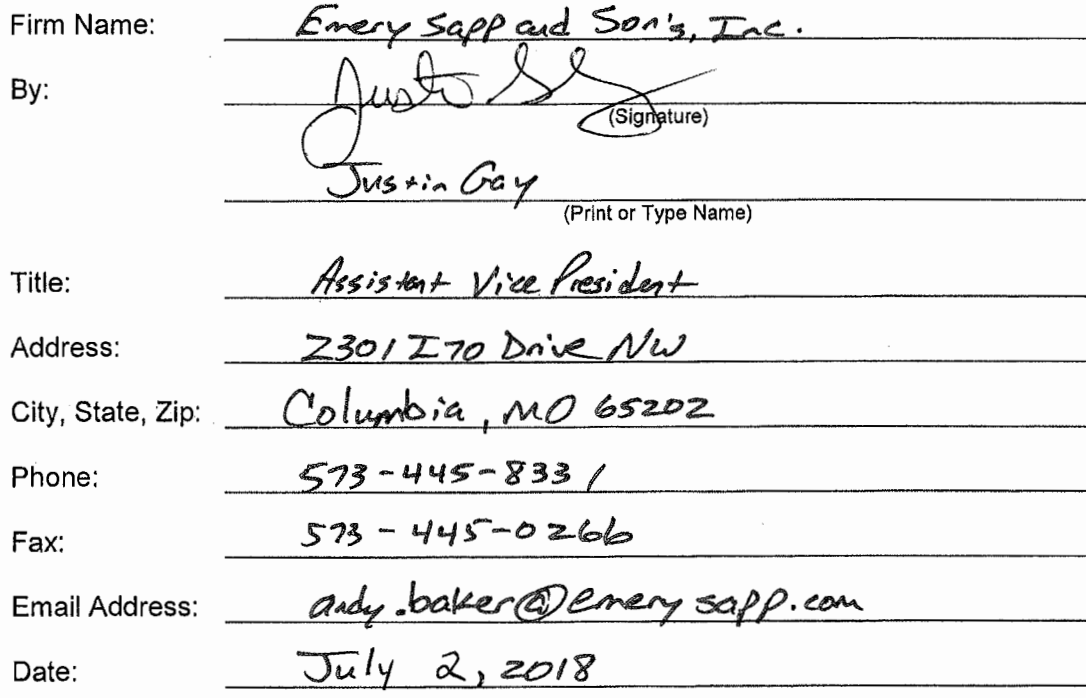 Firm Name: Emery Sapp and Son's, Inc.
By: Justin Gay
(Signature)
Justin Gay
(Print or Type Name)
Title: Assistant Vice President
Address: 2301 I70 Drive NW
City, State, Zip: Columbia, MO 65202
Phone: 573-445-8331
Fax: 573-445-0266
Email Address: andy.baker@emerysapp.com
Date: July 2, 2018